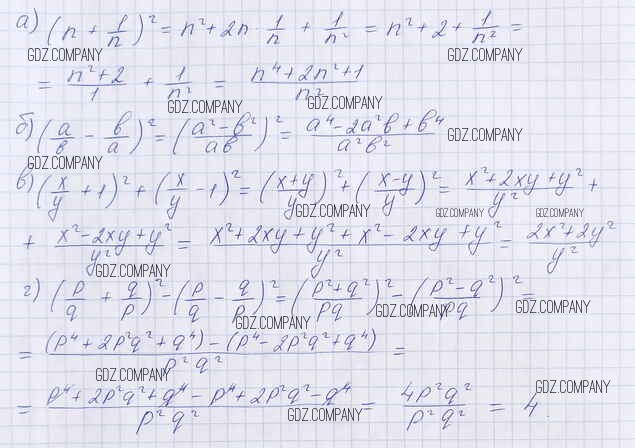 а) (n + 1/n)² = n² + 2n · 1/n + 1/n² = n² + 2 + 1/n² =
GDZ.COMPANY GDZ.COMPANY
= (n² + 2)/1 + 1/n² = (n⁴ + 2n² + 1)/n²
GDZ.COMPANY GDZ.COMPANY
б) (a/b − b/a)² = ((a² − b²)/ab)² = (a⁴ − 2a²b + b⁴)/a²b²
GDZ.COMPANY
GDZ.COMPANY
в) (x/y + 1)² + (x/y − 1)² = ((x+y)/y)² + ((x−y)/y)² = (x² + 2xy + y²)/y² +
GDZ.COMPANY GDZ.COMPANY GDZ.COMPANY
+ (x² − 2xy + y²)/y² = (x² + 2xy + y² + x² − 2xy + y²)/y² = (2x² + 2y²)/y²
GDZ.COMPANY
г) (p/q + q/p)² − (p/q − q/p)² = ((p² + q²)/pq)² − ((p² − q²)/pq)² =
GDZ.COMPANY GDZ.COMPANY GDZ.COMPANY
= ((p⁴ + 2p²q² + q⁴) − (p⁴ − 2p²q² + q⁴))/p²q² =
GDZ.COMPANY
= (p⁴ + 2p²q² + q⁴ − p⁴ + 2p²q² − q⁴)/p²q² = 4p²q²/p²q² = 4.
GDZ.COMPANY GDZ.COMPANY